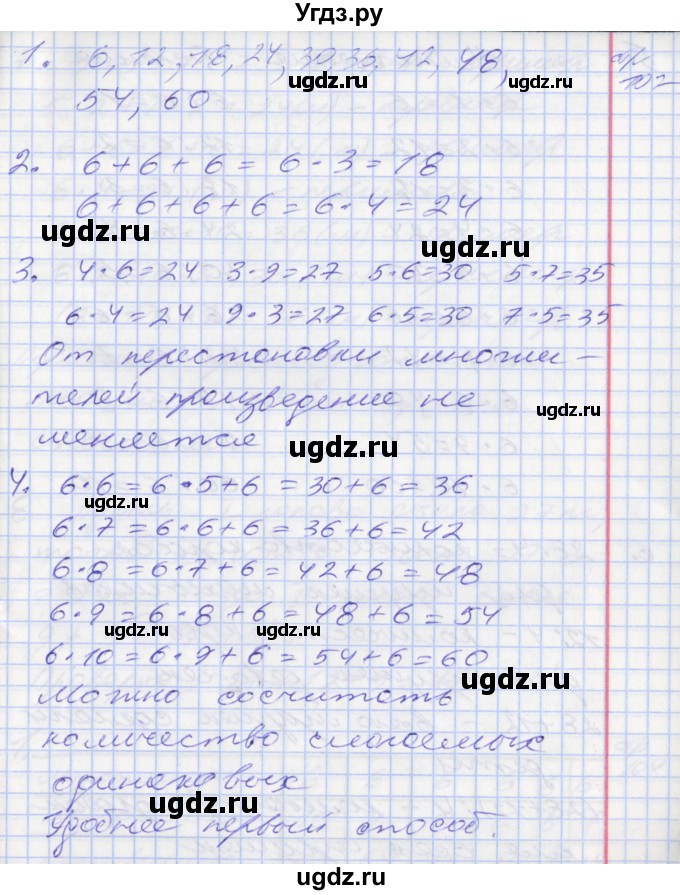 Угдз.ру
1. 6, 12, 18, 24, 30, 36, 42, 48,
ugdz.ru
54, 60
2. 6 + 6 + 6 = 6 · 3 = 18
6 + 6 + 6 + 6 = 6 · 4 = 24
ugdz.ru ugdz.ru
3. 4 · 6 = 24 3 · 9 = 27 5 · 6 = 30 5 · 7 = 35
6 · 4 = 24 9 · 3 = 27 6 · 5 = 30 7 · 5 = 35
От перестановки множи -
телей произведение не
ugdz.ru
меняется
ugdz.ru
4. 6 · 6 = 6 · 5 + 6 = 30 + 6 = 36
ugdz.ru
6 · 7 = 6 · 6 + 6 = 36 + 6 = 42
6 · 8 = 6 · 7 + 6 = 42 + 6 = 48
6 · 9 = 6 · 8 + 6 = 48 + 6 = 54
ugdz.ru ugdz.ru
6 · 10 = 6 · 9 + 6 = 54 + 6 = 60
ugdz.ru
Можно сосчитать
количество слогаемых
одинаковых
ugdz.ru
Удобнее первый способ.
ugdz.ru